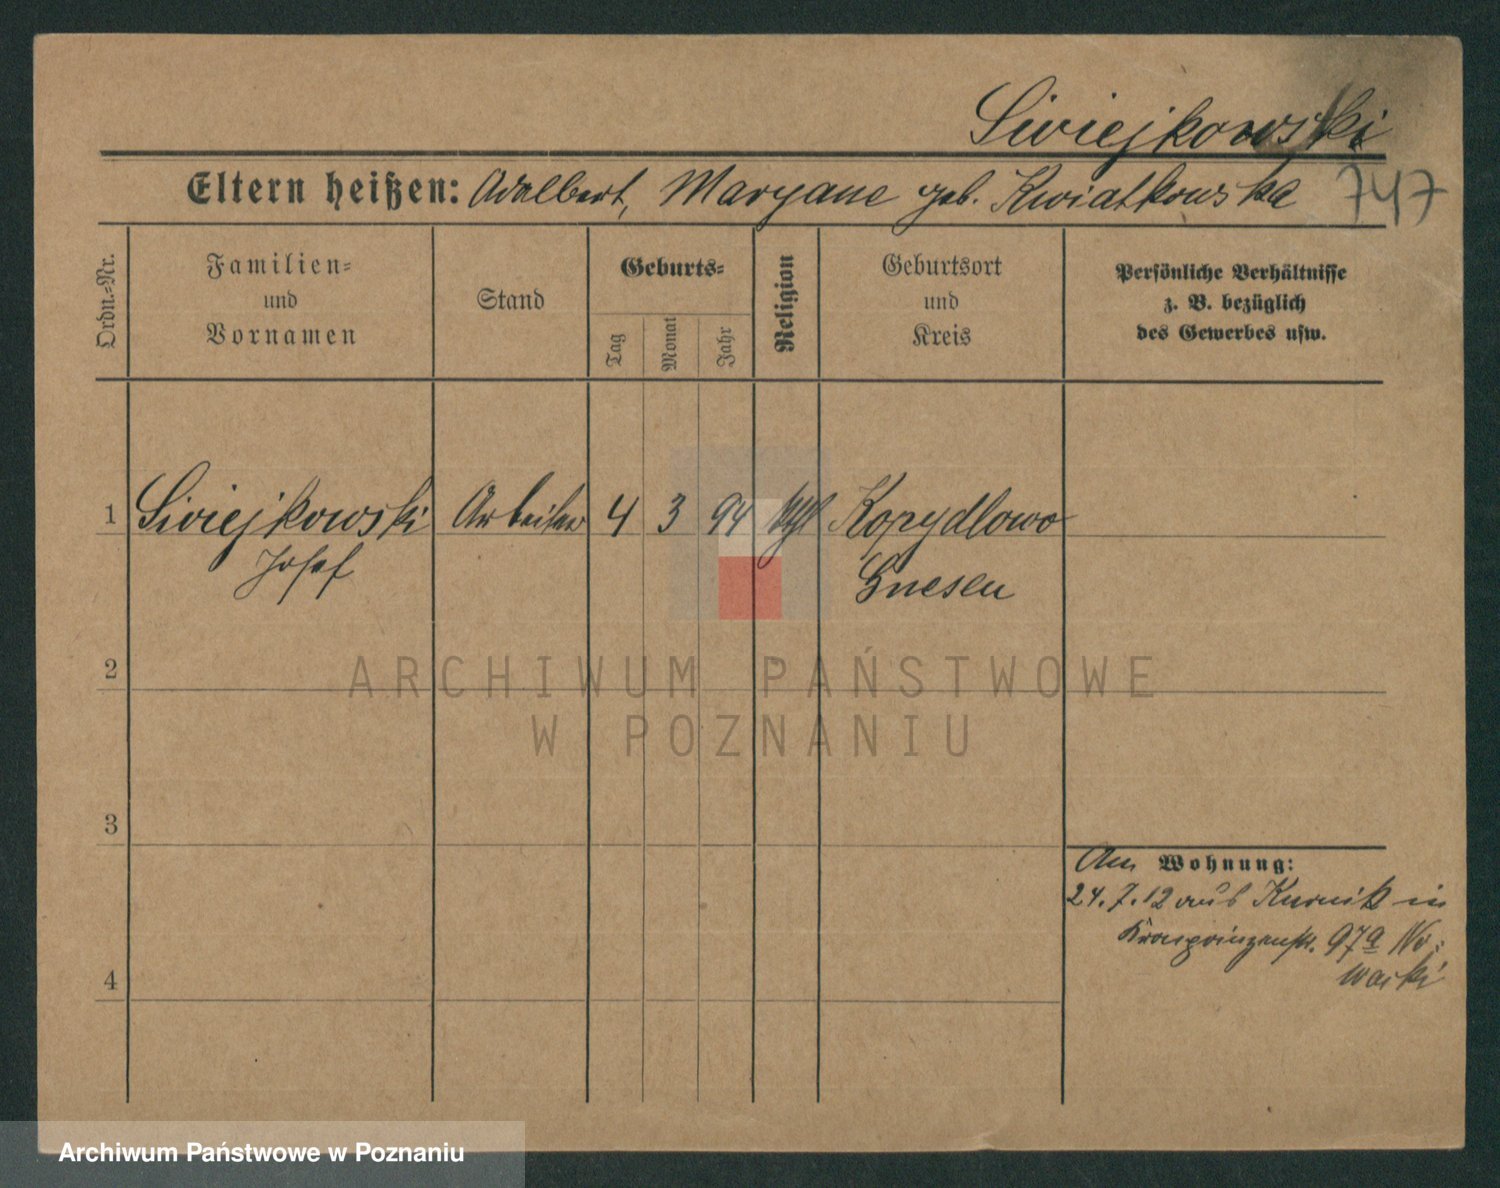 Siviejkowski
Eltern heißen: Adalbert, Maryane geb. Kwiatkowska 747
Ordn.-Nr.
Familien-
und
Vornamen
Stand
Geburts-
Tag
Monat
Jahr
Religion
Geburtsort
und
Kreis
Persönliche Verhältnisse
z. B. bezüglich
des Gewerbes usw.
1 Siviejkowski Arbeiter 4 3 94 kthl Kopydlowo
Josef Gnesen
2
ARCHIWUM PAŃSTWOWE
W POZNANIU
3
An Wohnung:
24.7.12 aus Kurnik in
Kronprinzenstr. 97a No-
4 wacki
Archiwum Państwowe w Poznaniu